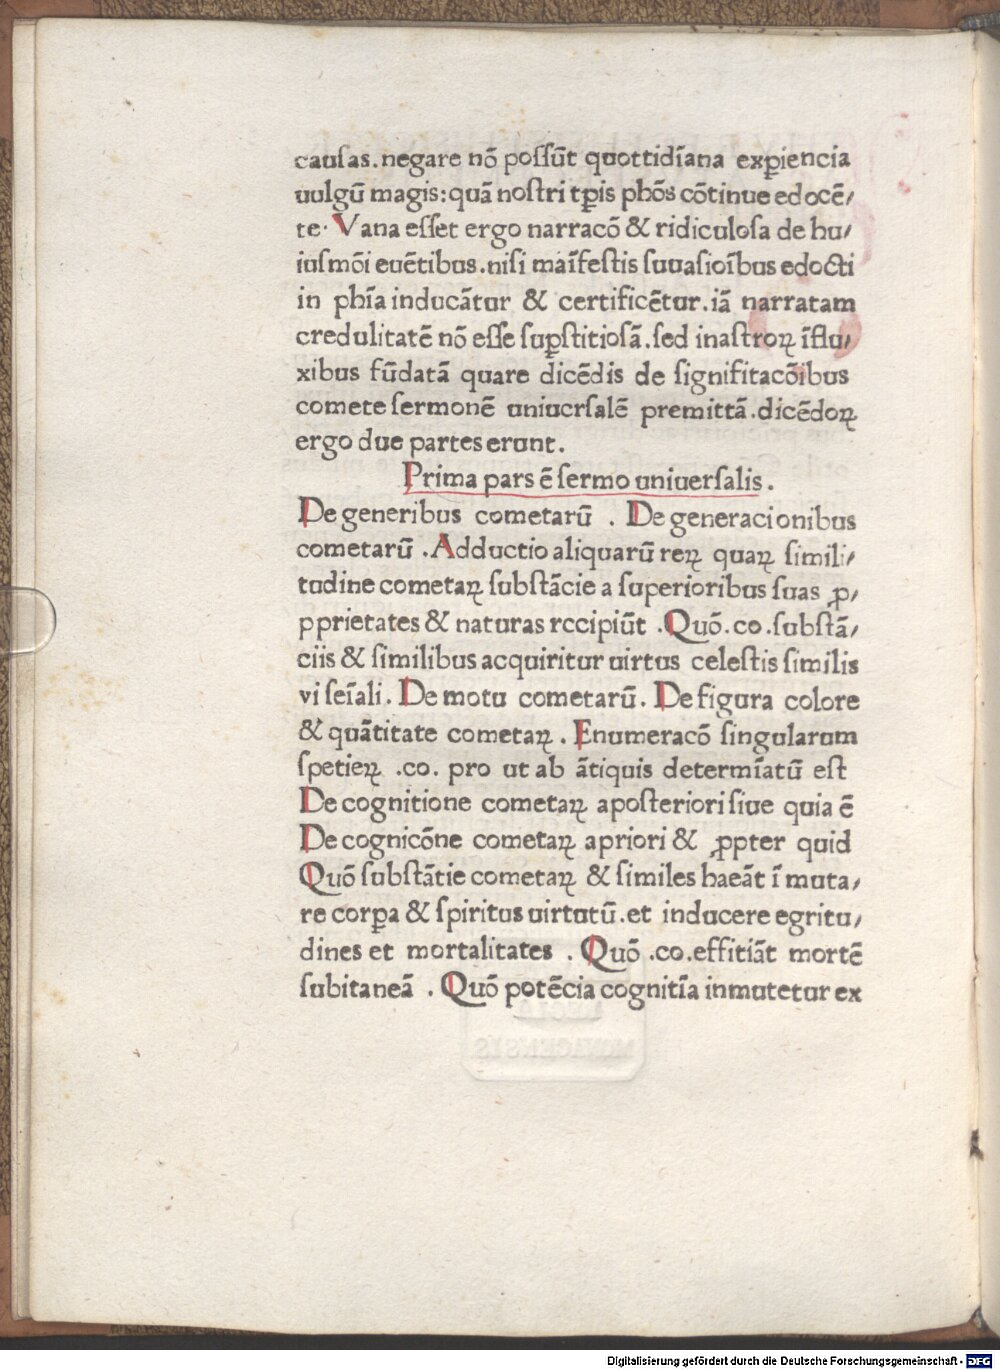 cauſas.negare nō poſſūt quottidīana exꝑiencia
uulgū magis:quā noſtri tꝑis phōs cōtinue edocē/
te. Vana eſſet ergo narracō & ridiculoſa de hu/
iuſmōi euētibus.niſi maīfeſtis ſuuaſioībus edocti
in phīa inducātur & certificētur.iā narratam
credulitatē nō eſſe ſuꝑſtitioſā.ſed inaſtroꝝ īflu/
xibus fūdatā quare dicēdis de ſignifitacōibus
comete ſermonē uniuerſalē premittā.dicēdoꝝ
ergo due partes erunt.
Prima pars ē ſermo uniuerſalis.
De generibus cometarū . De generacionibus
cometarū .Adductio aliquarū reꝝ quaꝝ simili/
tudine cometaꝝ ſubſtācie a ſuperioribus ſuas ꝓ/
pprietates & naturas rccipiūt .Quō.co.ſubſtā/
ciis & ſimilibus acquiritur uirtus celeſtis ſimilis
vi ſeīali. De motu cometarū. De figura colore
& quātitate cometaꝝ . Enumeracō ſingularum
ſpetieꝝ .co. pro ut ab ātiquis determīatū eſt
De cognitione cometaꝝ apoſteriori ſiue quia ē
De cognicōne cometaꝝ apriori & ꝓpter quid
Quō ſubſtātie cometaꝝ & ſimiles haeāt ī muta/
re corꝑa & ſpiritus uirtutū.et inducere egritu/
dines et mortalitates . Quō .co.effitiāt mortē
ſubitaneā . Quō potēcia cognitīa inmutetur ex
MONACENSIS
Digitalisierung gefördert durch die Deutsche Forschungsgemeinschaft - DFG